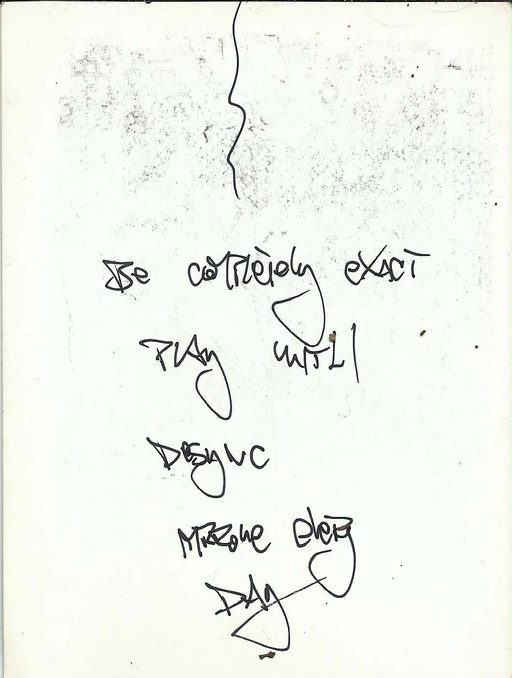 Be completely exact
Play until
Desync
every
Day